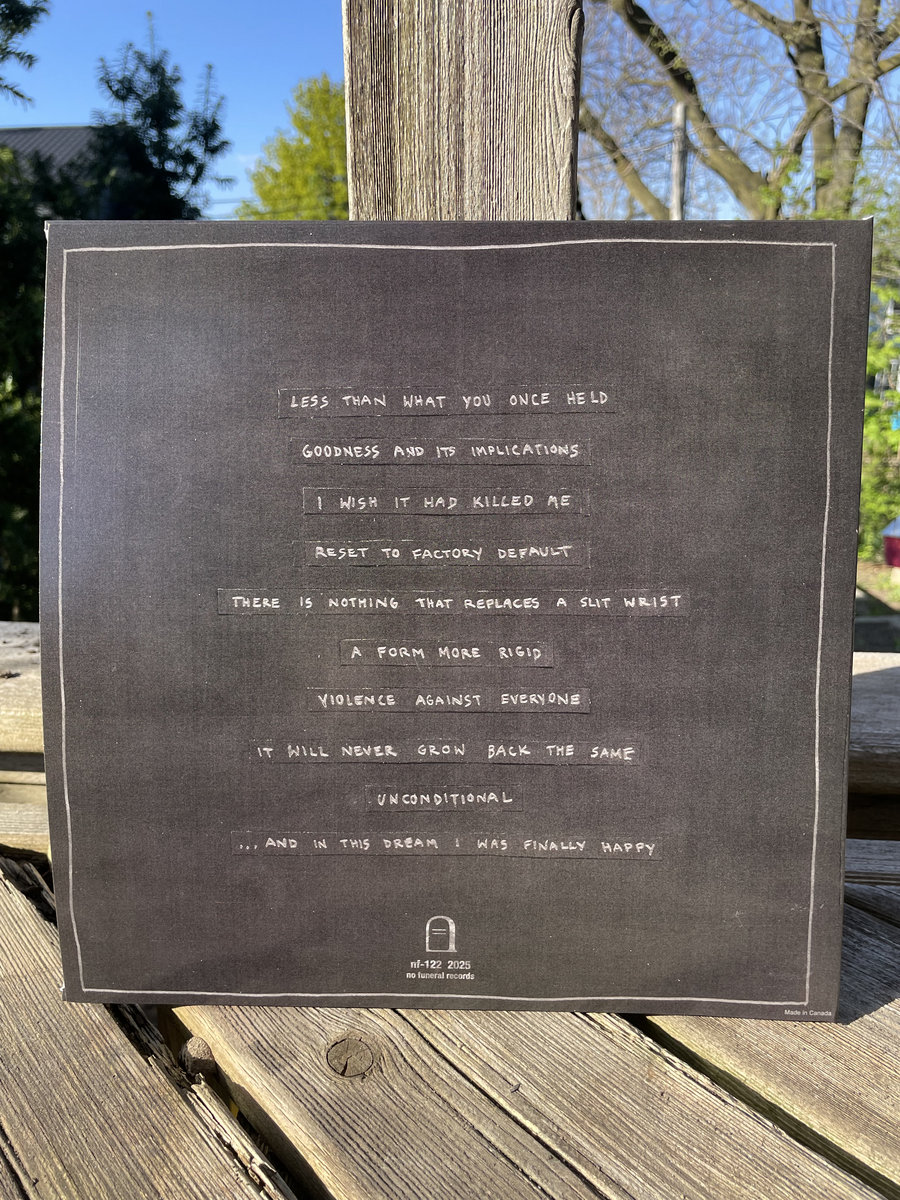 LESS THAN WHAT YOU ONCE HELD
GOODNESS AND ITS IMPLICATIONS
I WISH IT HAD KILLED ME
RESET TO FACTORY DEFAULT
THERE IS NOTHING THAT REPLACES A SLIT WRIST
A FORM MORE RIGID
VIOLENCE AGAINST EVERYONE
IT WILL NEVER GROW BACK THE SAME
UNCONDITIONAL
...AND IN THIS DREAM I WAS FINALLY HAPPY
nf-122 2025
no funeral records
Made in Canada